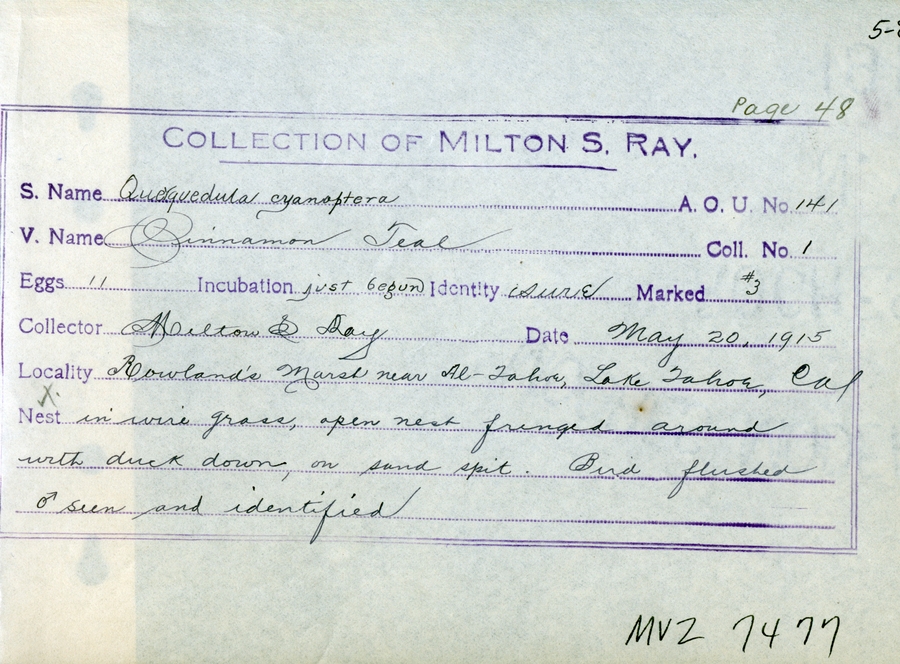 5-
Page 48
COLLECTION OF MILTON S. RAY.
S. Name Querquedula cyanoptera A. O. U. No. 141
V. Name Cinnamon Teal Coll. No. 1
Eggs 11 Incubation just begun Identity sure Marked #3
Collector Milton S Ray Date May 20, 1915
Locality Rowland's Marsh near Al-Tahoe, Lake Tahoe, Cal
X
Nest in wire grass, open nest fringed around
with duck down, on sand spit. Bird flushed
♂ seen and identified
MVZ 7477